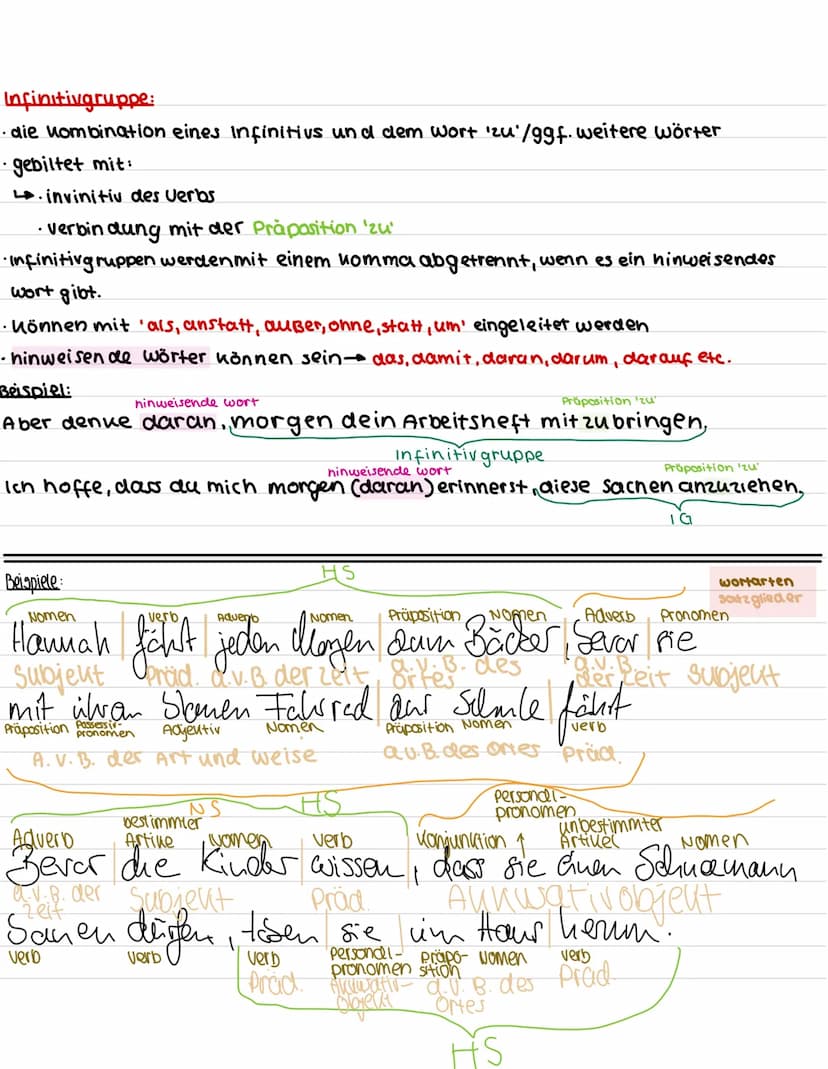 Infinitivgruppe:
· die Kombination eines Infinitivs und dem Wort 'zu'/ggf. weitere Wörter
· gebiltet mit:
↳ · invinitiv des Verbs
· verbindung mit der Präposition 'zu'
· Infinitivgruppen werden mit einem Komma abgetrennt, wenn es ein hinweisendes
Wort gibt.
· Können mit 'als, anstatt, außer, ohne, statt, um' eingeleitet werden
· hinweisende Wörter können sein → das, damit, daran, darum, darauf etc.
Beispiel:
hinweisende wort Präposition 'zu'
Aber denke daran, morgen dein Arbeitsheft mitzubringen.
Infinitivgruppe
hinweisende wort Präposition 'zu'
Ich hoffe, dass du mich morgen (daran) erinnerst, diese Sachen anzuziehen.
IG
HS
Beispiele: wortarten
satzglieder
Nomen verb Adverb Nomen Präposition Nomen Adverb Pronomen
Hannah | fährt | jeden Morgen | zum Bäcker, | bevor | sie
Subjekt Präd. a.v.B. der Zeit a.v.B. des Ortes a.v.B. der Zeit Subjekt
mit ihrem blauen Fahrrad | zur Schule | fährt
Präposition Possessiv-pronomen Adjektiv Nomen Präposition Nomen verb
A.v.B. der Art und weise a.v.B. des Ortes Präd.
NS HS
Adverb bestimmter Artike Nomen verb Konjunktion ↑ Personal-pronomen unbestimmter Artikel Nomen
Bevor | die Kinder | wissen, | dass sie einen Schneemann
a.v.B. der Zeit Subjekt Präd. Akkusativobjekt
bauen dürfen, toben | sie | im Haus | herum.
verb verb verb Personal-pronomen Präpo-sition Nomen verb
Präd. Akkusativ-objekt a.v.B. des Ortes Präd.
HS